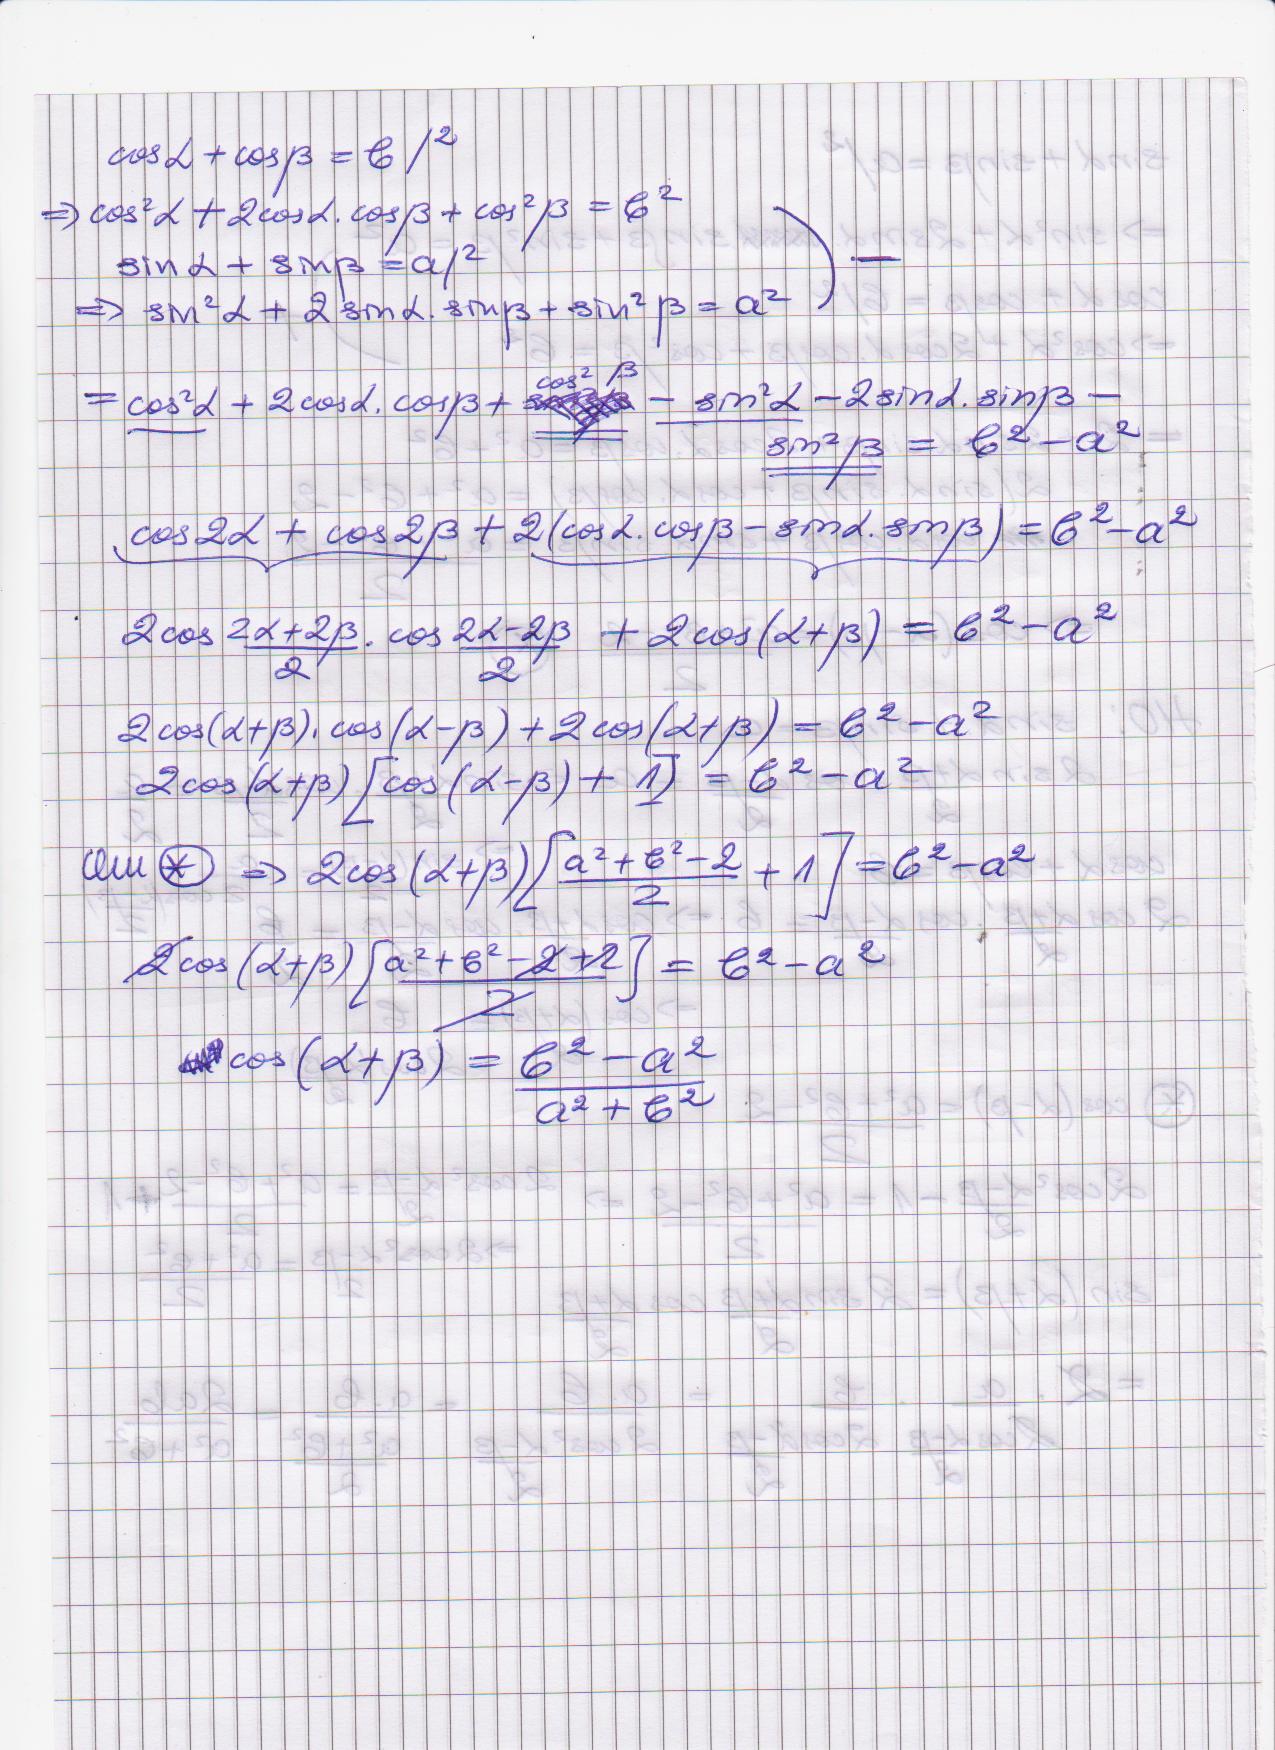 cosα + cosβ = b /²
=> cos²α + 2cosα.cosβ + cos²β = b²
sinα + sinβ = a /²
=> sin²α + 2sinα.sinβ + sin²β = a² ) —
= cos²α + 2cosα.cosβ + cos²β - sin²α - 2sinα.sinβ -
sin²β = b² - a²
cos2α + cos2β + 2(cosα.cosβ - sinα.sinβ) = b² - a²
2cos (2α+2β)/2 . cos (2α-2β)/2 + 2cos(α+β) = b² - a²
2cos(α+β).cos(α-β) + 2cos(α+β) = b² - a²
2cos(α+β)[cos(α-β) + 1] = b² - a²
От (*) => 2cos(α+β)[(a²+b²-2)/2 + 1] = b² - a²
2cos(α+β)[(a²+b²-2+2)/2] = b² - a²
cos(α+β) = (b² - a²)/(a² + b²)